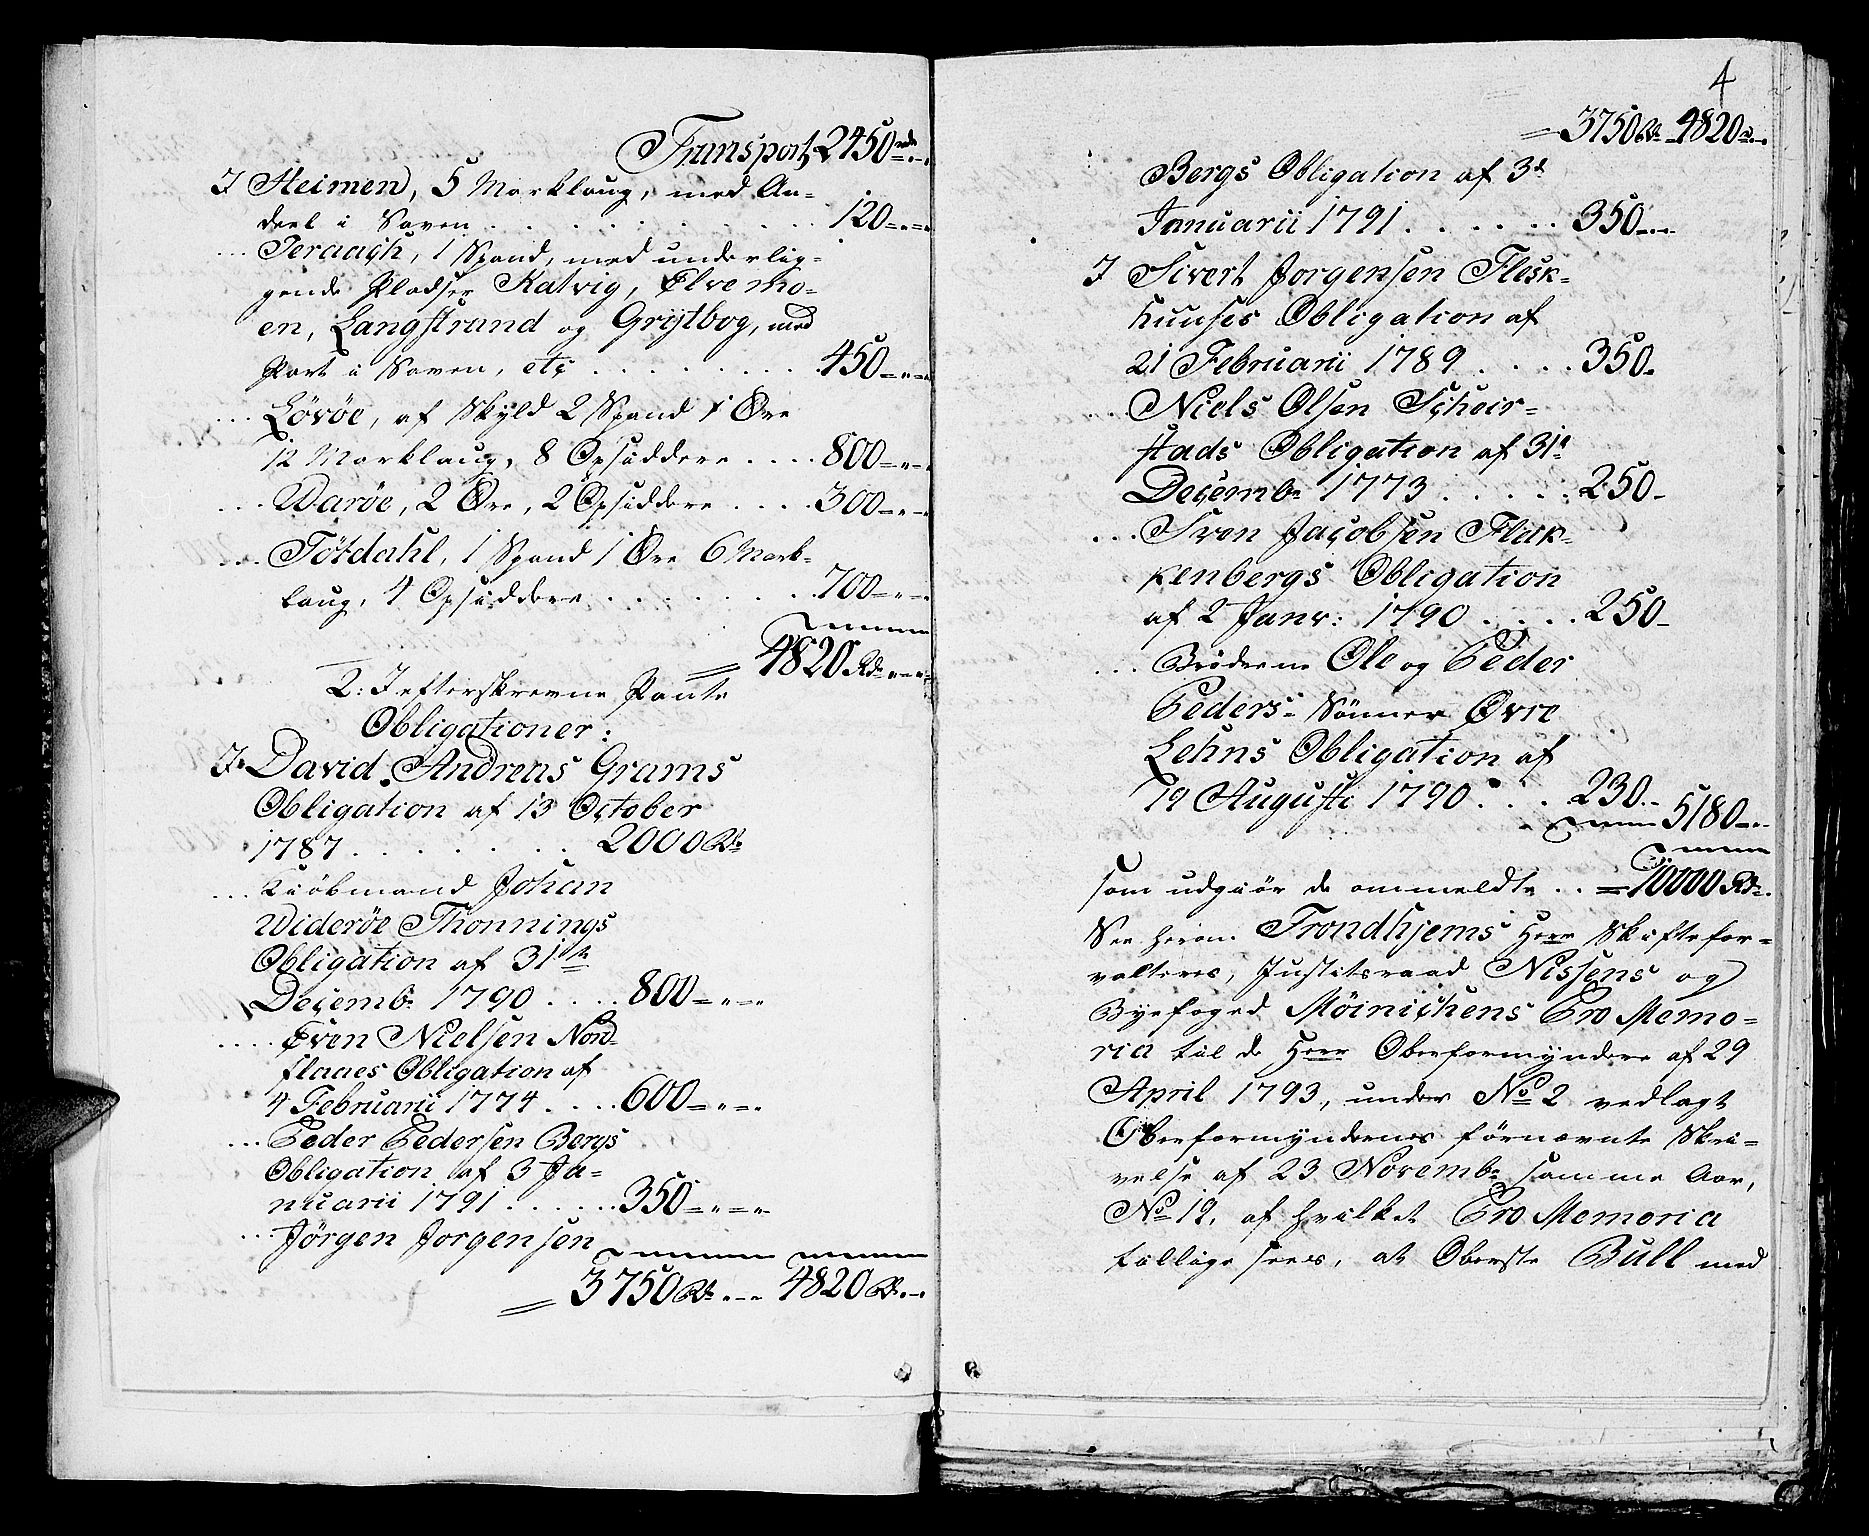 Transport, 2450 rdr
I Heimen, 5 Marklaug, med An-
deel i Saven . . . . . . . . . 120
... Teraach, 1 Spand, med underlig-
gende Pladser Katvig, Elvemo-
en, Langstrand og Grystbog, med
Part i Saven, etc . . . . . . . . 450
... Løvøe, af Skyld 2 Spand 1 Øre
12 Marklaug, 8 Opsiddere . . . . 800
... Warøe, 2 Øre, 2 Opsiddere . . . . 300
... Tøtdahl, 1 Spand 1 Øre 6 Mark-
laug, 4 Opsiddere . . . . . . . . 700
= 4820 Rdr
2: I efterskrevne Pante
Obligationer:
I David Andreas Grams
Obligation af 13 October
1787 . . . . . . . 2000 Rdr
... Kiøbmand Johan
Widerøe Thonnings
Obligation af 31te
Decembr 1790 . . . . 800
.... Even Nielsen Nord-
flaaes Obligation af
4 Februarii 1774 . . . . 600
... Peder Pedersen Bergs
Obligation af 3 Ja-
nuarii 1791 . . . . . . 350
... Jørgen Jorgensen
= 3750 Rdr 4820 Rdr
4
= 3750 Rdr 4820
Bergs Obligation af 3d
Januarii 1791 . . . . . . 350
I Sivert Jorgensen Flesk-
huuses Obligation af
21 Februarii 1789 . . . . 350.
... Niels Olsen Scheir-
stads Obligation af 31te
Decembr 1773 . . . . . 250
... Sven Jacobsen Flak-
kenbergs Obligation
af 2 Janv: 1790 . . . . . 250
... Brødrene Ole og Peder
Peders-Sønner Øvre
Lehns Obligation af
19 Augusti 1790 . . . 230.
5180
som udgiør de ommeldte . . = 10000 Rdr.
See herom Trondhjems Herr Skiftefor-
valteres, Justitsraad Nissens og
Byefoged Möinichens Pro Memo-
ria til de Herr Oberformyndere af 29
April 1793, under No 2 vedlagt
Oberformyndernes førnævnte Skri-
velse af 23 Novembr samme Aar,
No 19, af hvilket Pro Memoria
tillige sees, at Oberste Bull med